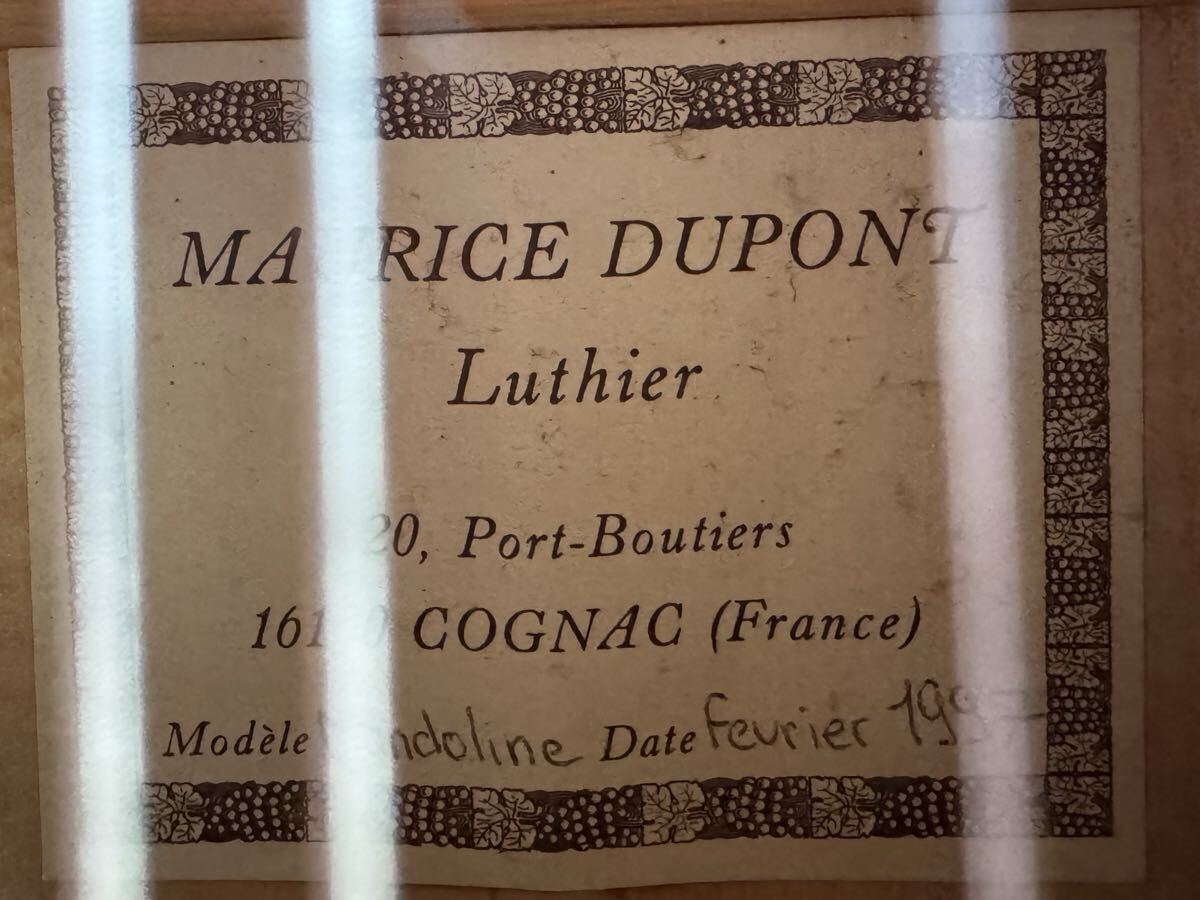 MAURICE DUPONT
Luthier
20, Port-Boutiers
COGNAC (France)
Modèle Mandoline Date fevrier